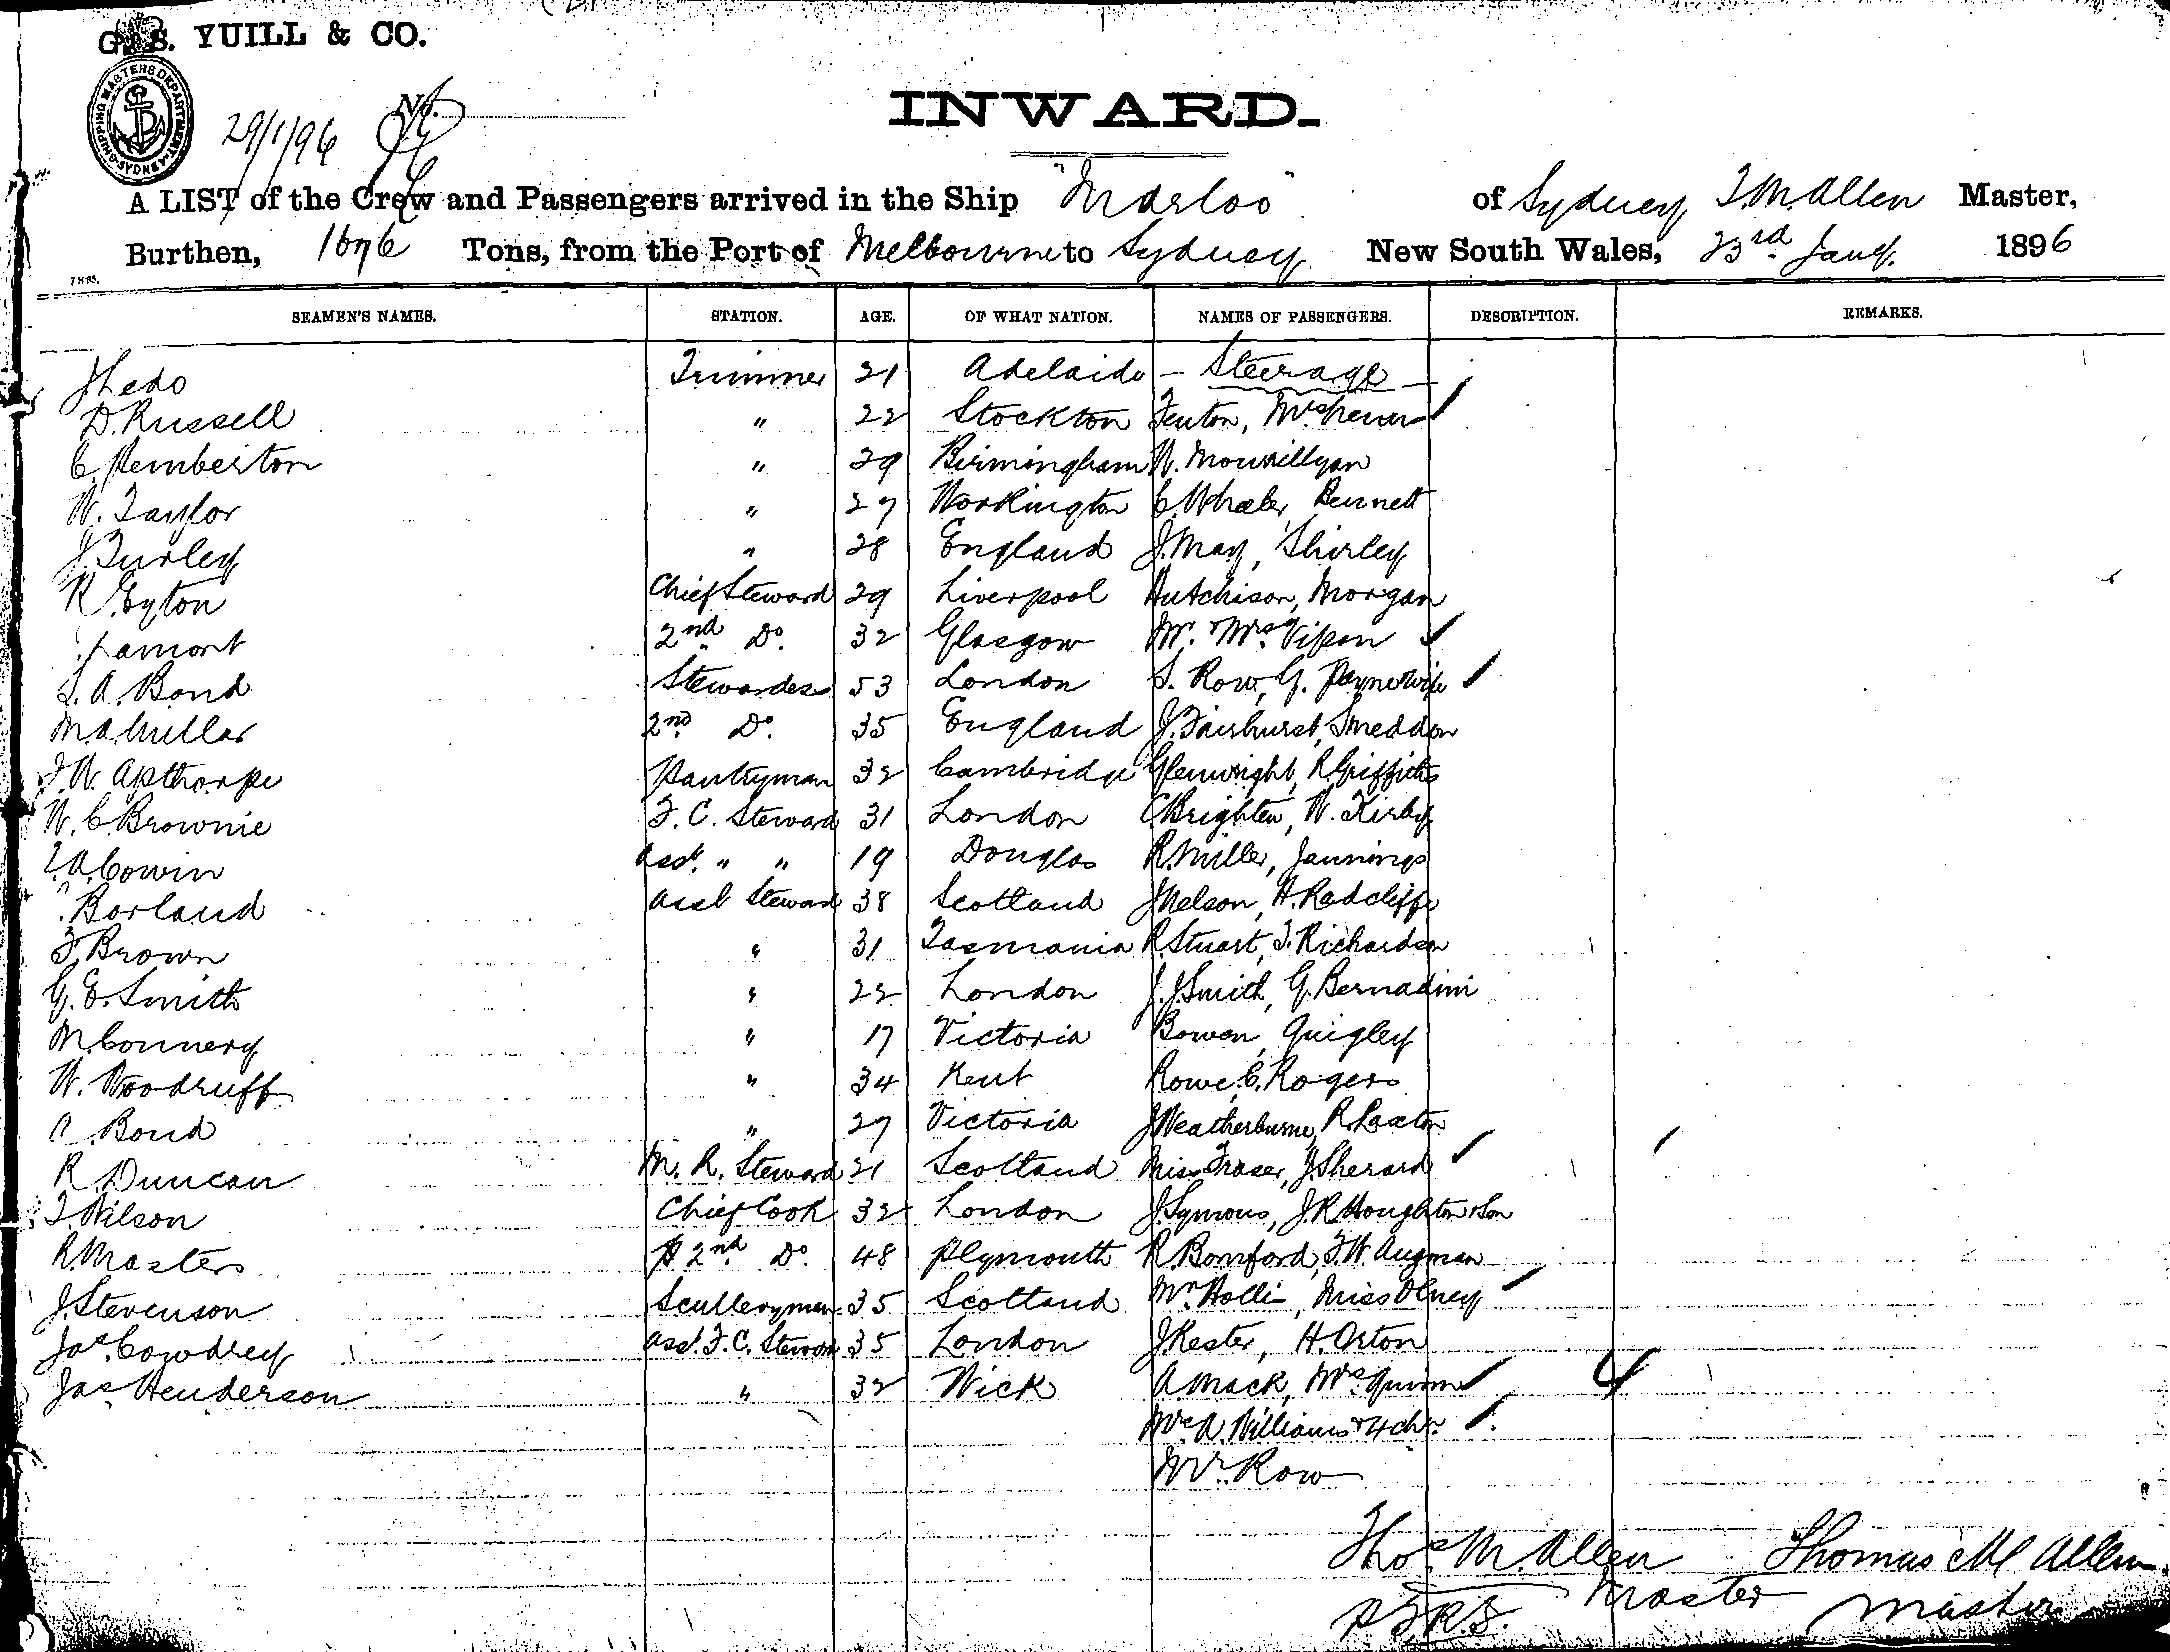 G. S. YUILL & CO.
SHIPPING MASTERS DEPARTMENT SYDNEY
29/1/96 No.
INWARD.
A LIST of the Crew and Passengers arrived in the Ship "Marloo" of Sydney T. M. Allen Master,
Burthen, 1676 Tons, from the Port of Melbourne to Sydney New South Wales, 23rd Jany. 1896
SEAMEN'S NAMES. STATION. AGE. OF WHAT NATION. NAMES OF PASSENGERS. DESCRIPTION. REMARKS.
J Ledo Trimmer 21 Adelaide - Steerage -
D. Russell " 22 Stockton Fenton, Mrs
C. Pemberton " 29 Birmingham W.
W. Taylor " 27 Workington C. Whaler, Bennett
J. Turley " 28 England J. May, Shirley
R. Eyton Chief Steward 29 Liverpool Hutchison, Morgan
Lamont 2nd Do. 32 Glasgow Mr. & Mrs. Vipon
S. A. Bond Stewardess 53 London S. Row, G. Payne & wife
M. A. Millar 2nd Do. 35 England J. Fairhurst, Smeddon
J. W. Apthorpe Pantryman 32 Cambridge Glenwright, R. Griffiths
W. C. Brownie F. C. Steward 31 London C. Brighten, W. Kirby
T. A. Cowin Asst. " " 19 Douglas R. Miller, Jannings
Borland Asst Steward 38 Scotland J Nelson, H. Radcliffe
F. Brown " 31 Tasmania R. Stuart, T. Richardson
G. E. Smith " 22 London J. J. Smith, G. Bernadini
M. Connery " 17 Victoria Bowen, Quigley
W. Woodruff " 34 Kent Rowe, C. Rogers
Bond " 27 Victoria J Weatherburne, R. Laxton
R. Duncan M. R. Steward 21 Scotland Miss Fraser, J. Sherard
T. Wilson Chief Cook 32 London J. Symons, J. R. Houghton & Son
R. Masters 2nd Do. 48 Plymouth R. Bomford, F. W. Augman
J. Stevenson Sculleryman 35 Scotland Mr. Hollis, Miss Olney
Jas. Cowdrey Asst. F. C. Steward 35 London J. Kester, H. Orton
Jas Henderson " 32 Wick A. Mack, Mrs. Quinn
Mrs. A. Williams & 4 chn.
Mr. Row
Thos. M. Allen Thomas M Allen
Master Master